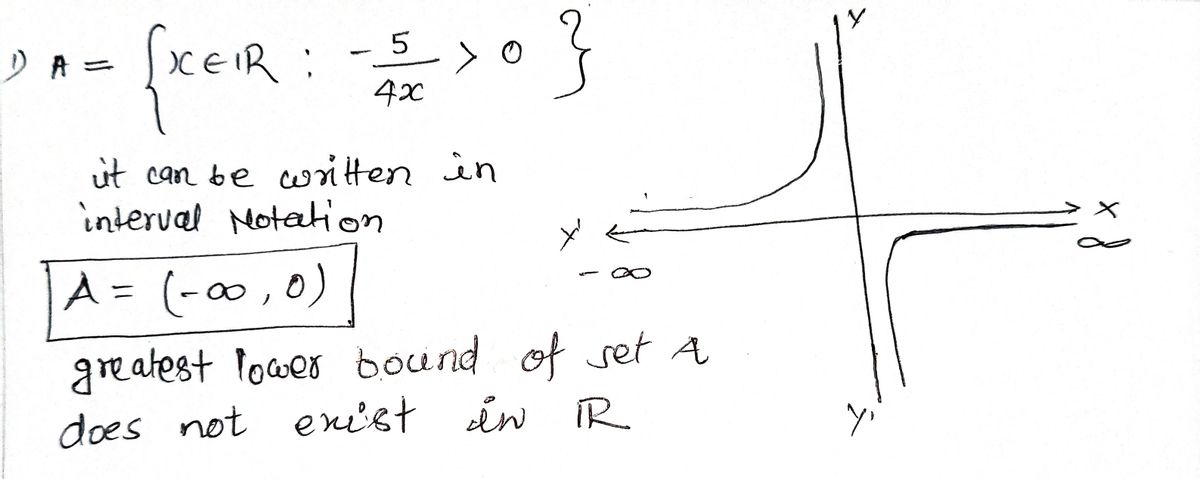 1) A = {x ∈ ℝ : - 5/4x > 0}
it can be written in
interval Notation
A = (-∞, 0)
greatest lower bound of set A
does not exist in ℝ
Y
X
∞
X'
- ∞
Y'